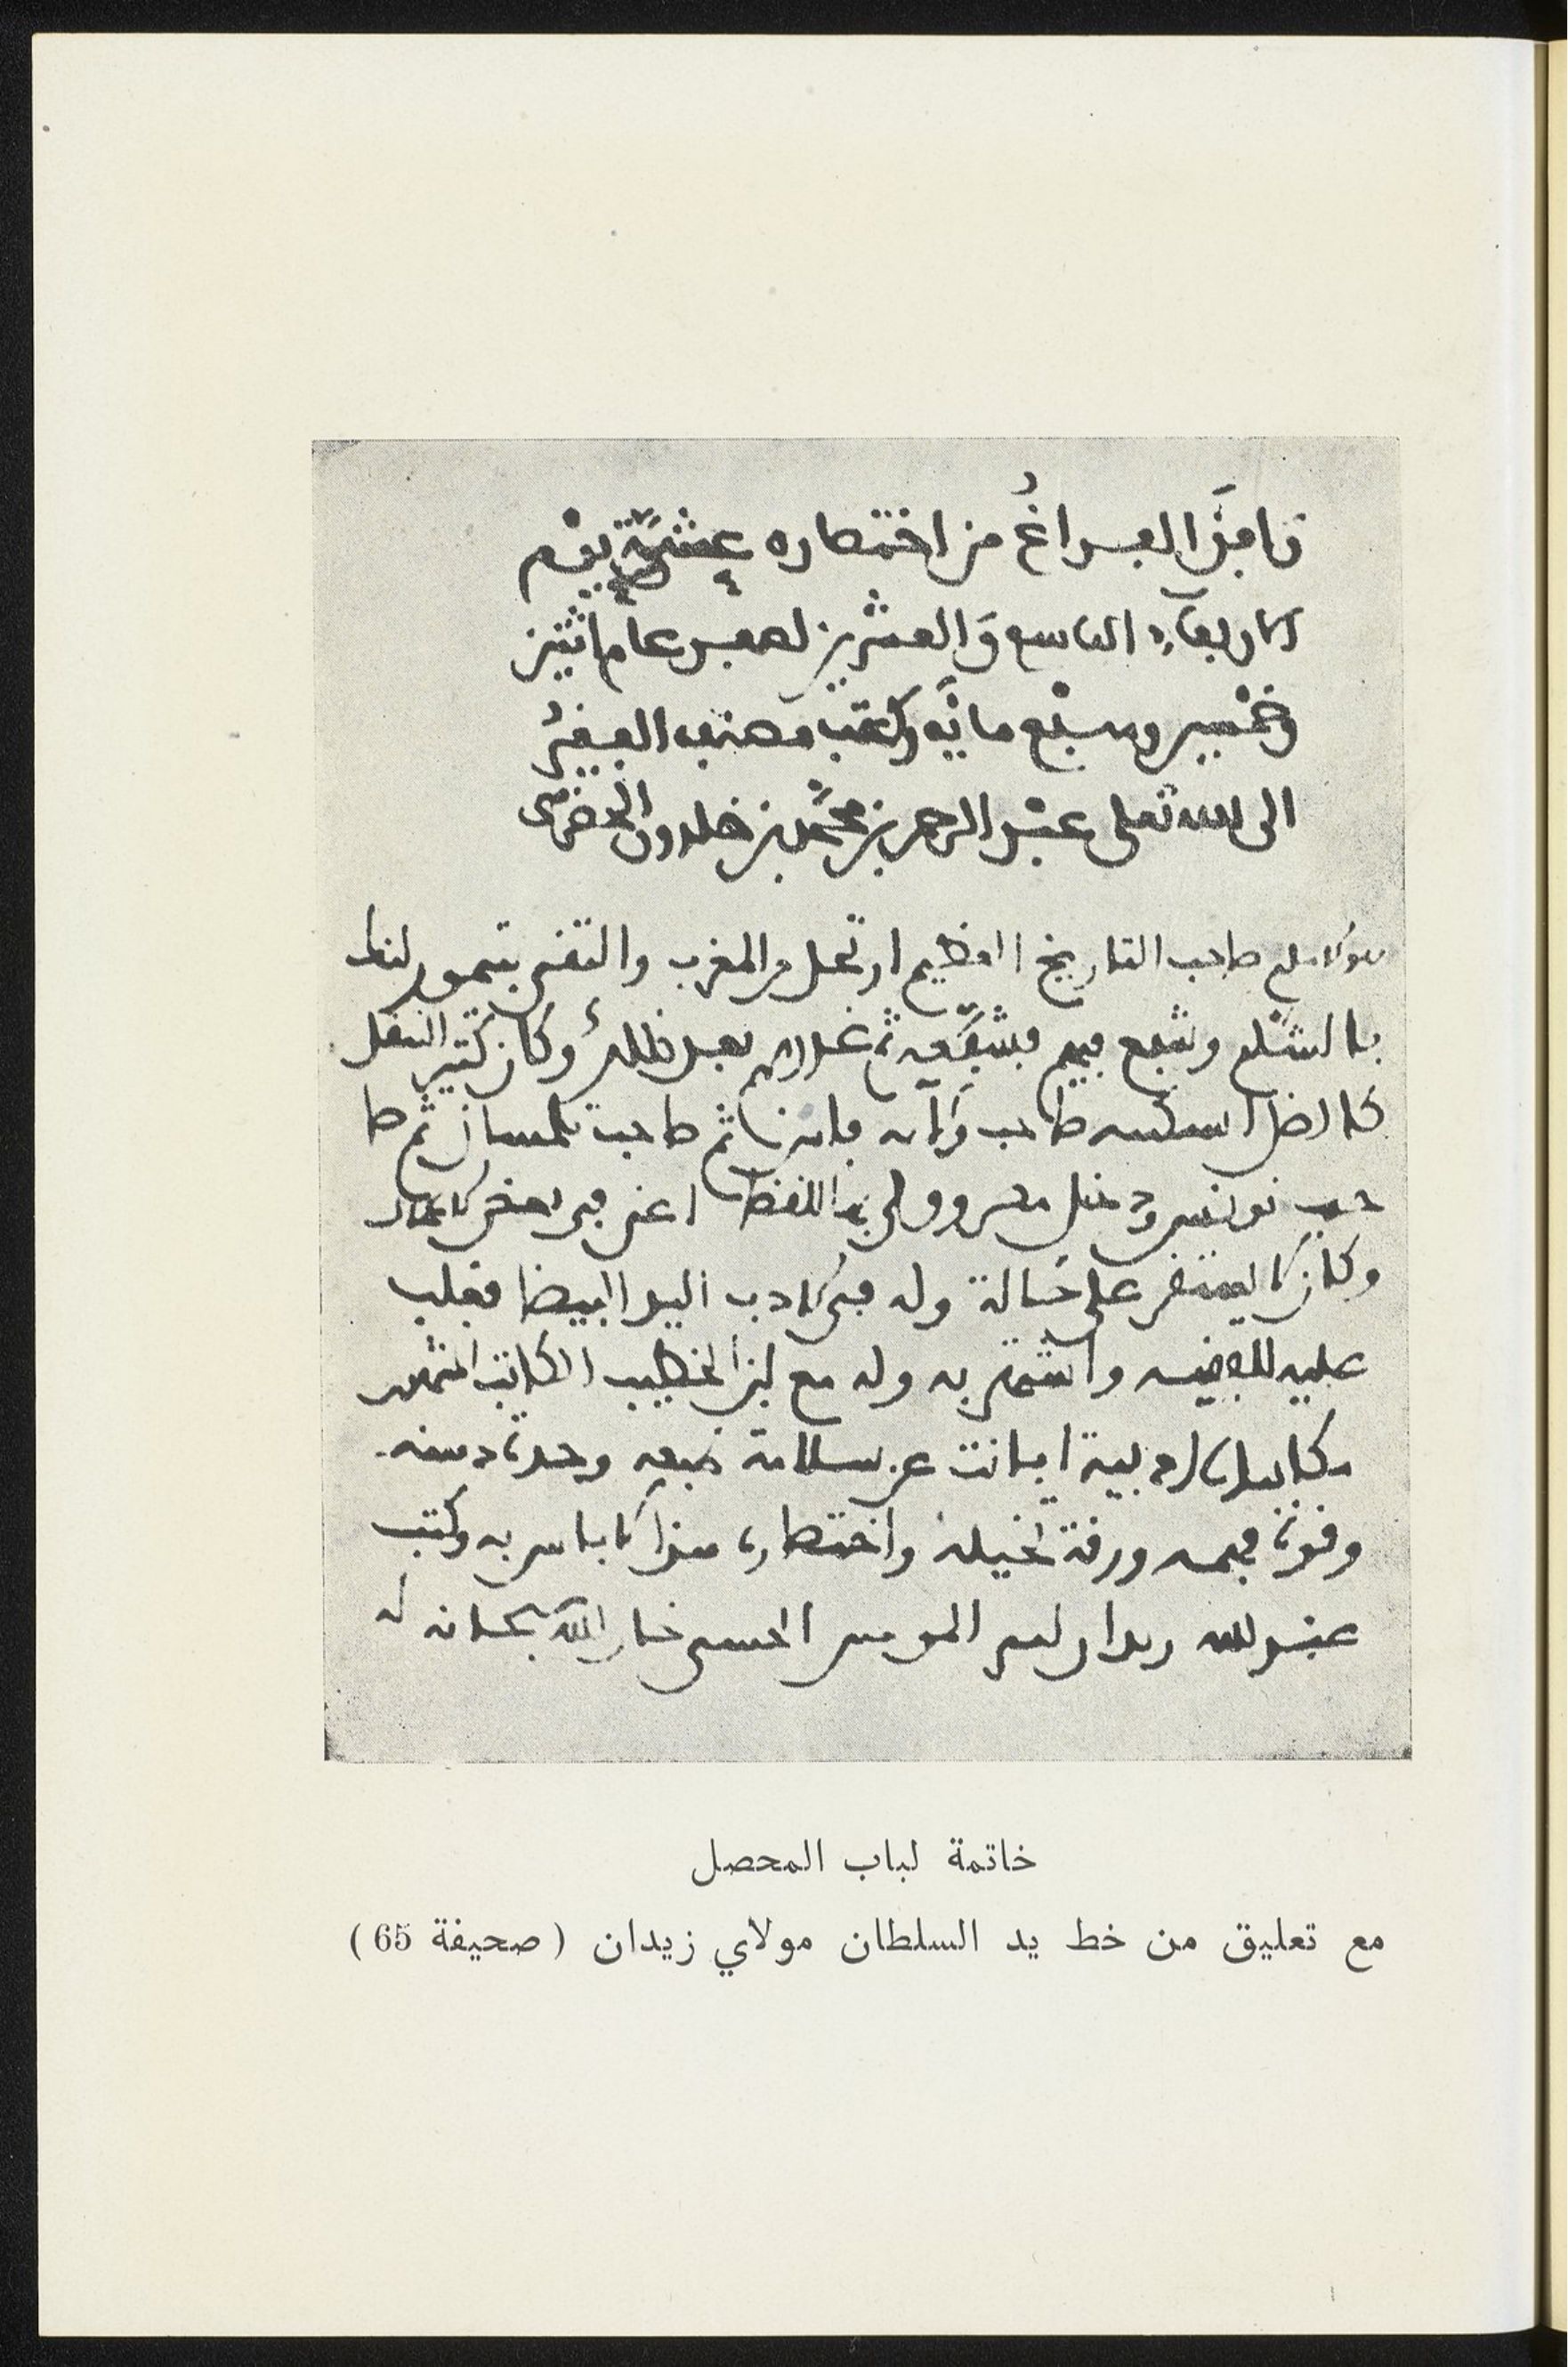 وافق الفراغ من اختصاره عشية يوم
الاربعاء التاسع والعشرين لصفر عام اثنين
وخمسين وسبع مائه وكتب مصنفه الفقير
الى الله تعلى عبد الرحمن بن محمد بن خلدون الحضرمى
صاحب التاريخ العظيم ارتحل من المغرب والتقى بتيمور لنك
بالشام وشفع فيهم فشفعه ثم غدرهم بعد ذلك وكان كثير التنقل
صاحب فاس ثم صاحب تلمسان ثم صا
حب تونس ودخل مصر وولى بها القضا اعنى فى بعض
وكان لا يستقر على حالة وله فى الادب اليد البيضا فغلب
عليه واشتهر به وله مع ابن الخطيب الكاتب المشهور
ادبية ابانت عن سلامة طبعه وحدة
وقوة فهمه ورقة تخيله واختصاره هذا لا باس به وكتب
عبد الله زيدان امير المومنين الحسنى خار الله سبحانه له
خاتمة لباب المحصل
مع تعليق من خط يد السلطان مولاي زيدان ( صحيفة 65 )